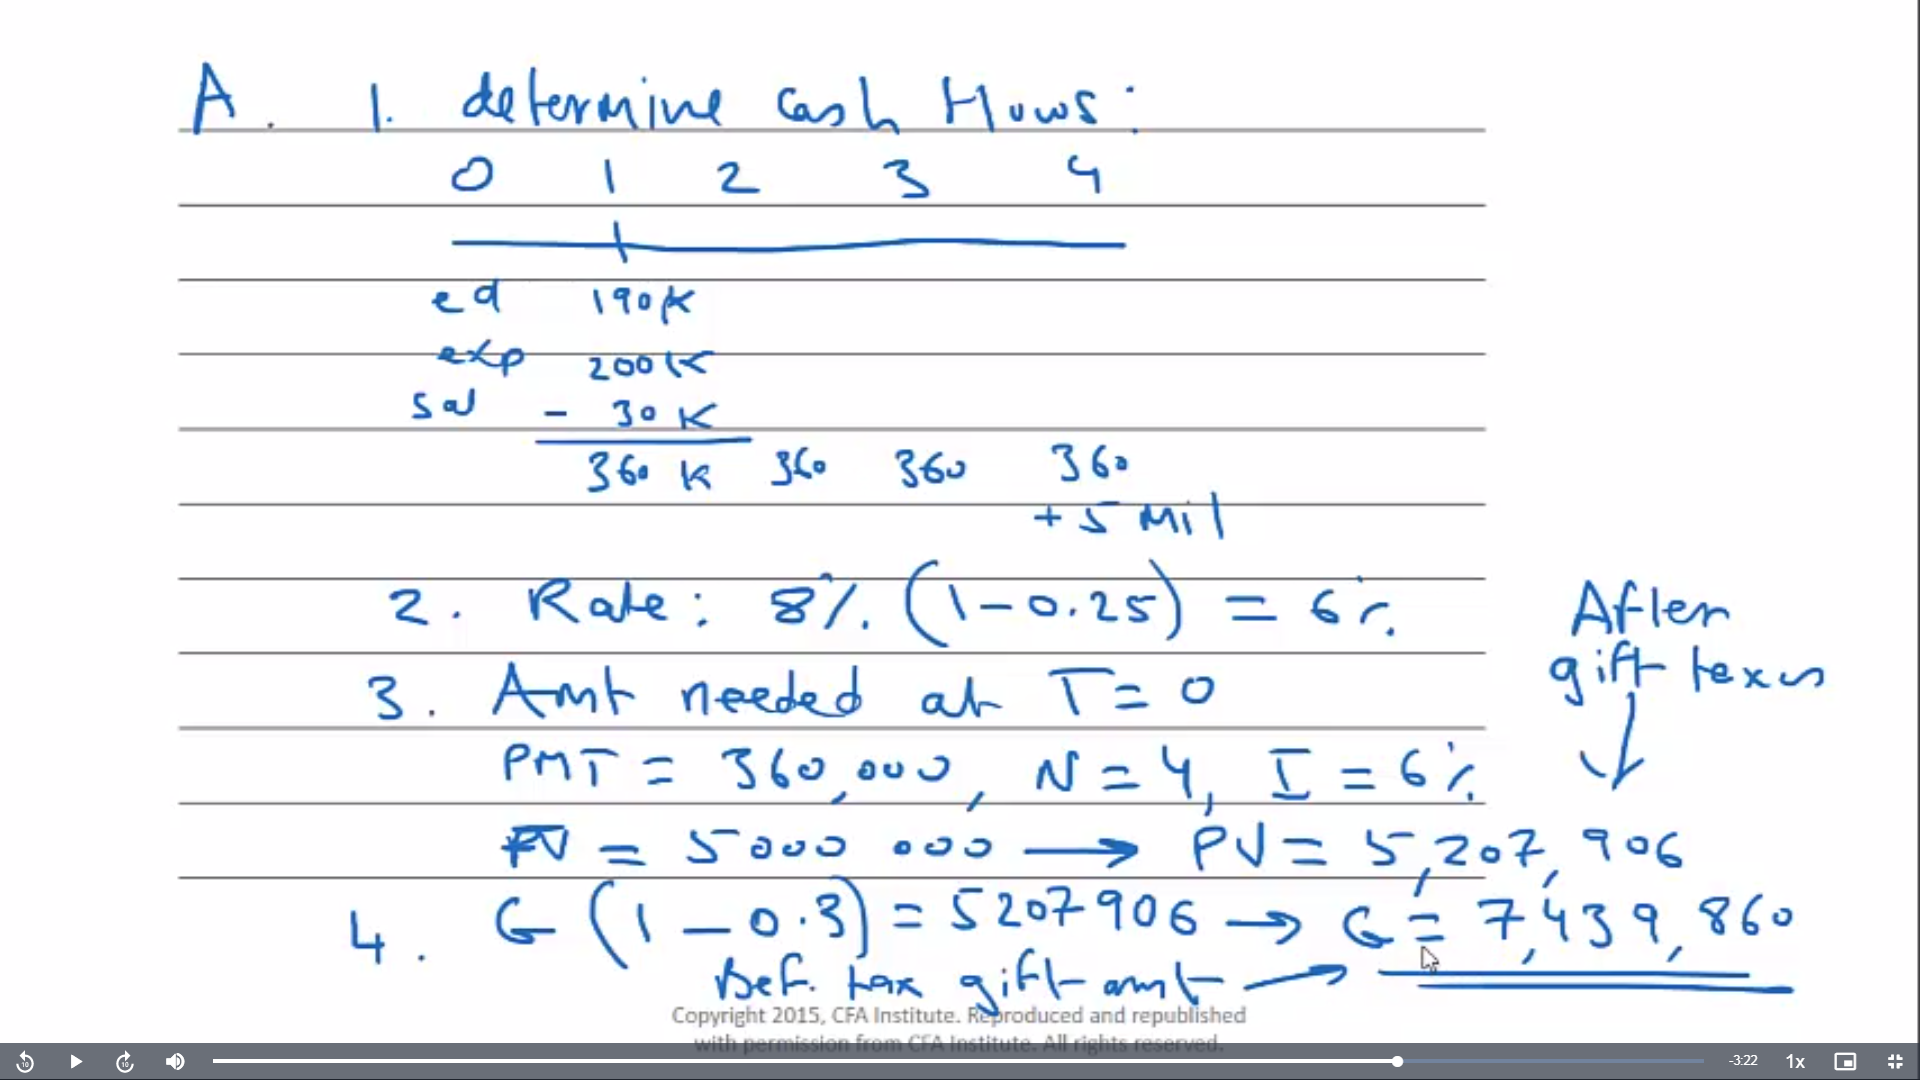 A. 1. determine cash flows:
0 1 2 3 4
ed 190K
exp 200K
sal - 30K
360 K 360 360 360
+ 5 Mil
2. Rate: 8% (1-0.25) = 6%
After
gift taxes
3. Amt needed at T=0
PMT = 360,000, N=4, I=6%
FV = 5000 000 → PV = 5,207,906
4. G (1-0.3) = 5207906 → G = 7,439,860
Bef. tax gift amt →
Copyright 2015, CFA Institute. Reproduced and republished
with permission from CFA Institute. All rights reserved.
10 10 -3:22 1x